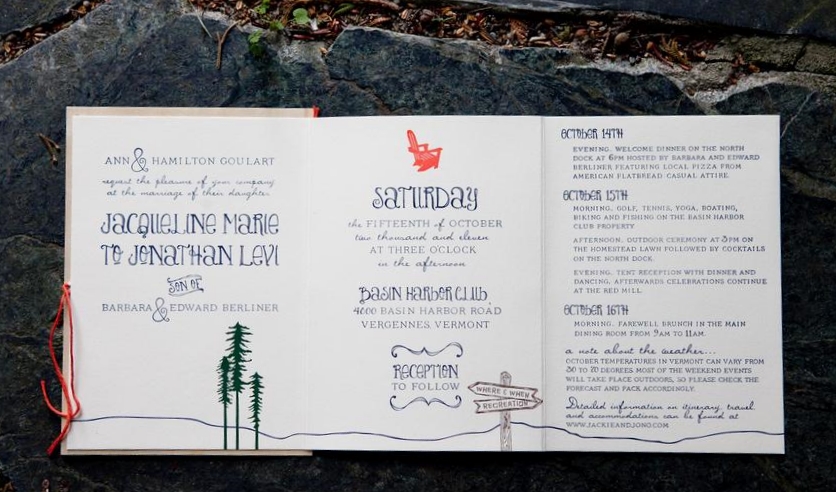 ANN & HAMILTON GOULART
request the pleasure of your company
at the marriage of their daughter
JACQUELINE MARIE
TO JONATHAN LEVI
SON OF
BARBARA & EDWARD BERLINER
SATURDAY
the FIFTEENTH of OCTOBER
two thousand and eleven
AT THREE O'CLOCK
in the afternoon
BASIN HARBOR CLUB
4600 BASIN HARBOR ROAD
VERGENNES, VERMONT
RECEPTION
TO FOLLOW
WHERE & WHEN
RECREATION
OCTOBER 14TH
EVENING. WELCOME DINNER ON THE NORTH
DOCK AT 6PM HOSTED BY BARBARA AND EDWARD
BERLINER FEATURING LOCAL PIZZA FROM
AMERICAN FLATBREAD CASUAL ATTIRE.
OCTOBER 15TH
MORNING. GOLF, TENNIS, YOGA, BOATING,
BIKING AND FISHING ON THE BASIN HARBOR
CLUB PROPERTY
AFTERNOON. OUTDOOR CEREMONY AT 3PM ON
THE HOMESTEAD LAWN FOLLOWED BY COCKTAILS
ON THE NORTH DOCK.
EVENING. TENT RECEPTION WITH DINNER AND
DANCING. AFTERWARDS CELEBRATIONS CONTINUE
AT THE RED MILL.
OCTOBER 16TH
MORNING. FAREWELL BRUNCH IN THE MAIN
DINING ROOM FROM 9AM TO 11AM.
a note about the weather...
OCTOBER TEMPERATURES IN VERMONT CAN VARY FROM
30 TO 70 DEGREES. MOST OF THE WEEKEND EVENTS
WILL TAKE PLACE OUTDOORS, SO PLEASE CHECK THE
FORECAST AND PACK ACCORDINGLY.
Detailed information on itinerary, travel
and accommodations can be found at
WWW.JACKIEANDJONO.COM